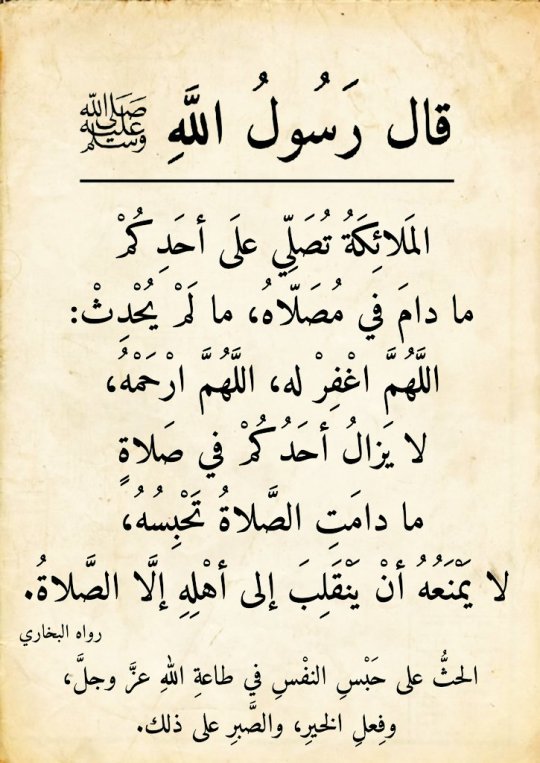 قال رَسُولُ اللَّهِ ﷺ
المَلائِكَةُ تُصَلِّي علَى أحَدِكُمْ
ما دامَ في مُصَلَّاهُ، ما لَمْ يُحْدِثْ:
اللَّهُمَّ اغْفِرْ له، اللَّهُمَّ ارْحَمْهُ،
لا يَزالُ أحَدُكُمْ في صَلاةٍ
ما دامَتِ الصَّلاةُ تَحْبِسُهُ،
لا يَمْنَعُهُ أنْ يَنْقَلِبَ إلى أهْلِهِ إلَّا الصَّلاةُ.
رواه البخاري
الحثُّ على حَبْسِ النفْسِ في طاعةِ اللهِ عزَّ وجلَّ،
وفِعلِ الخيرِ، والصَّبرِ على ذلك.